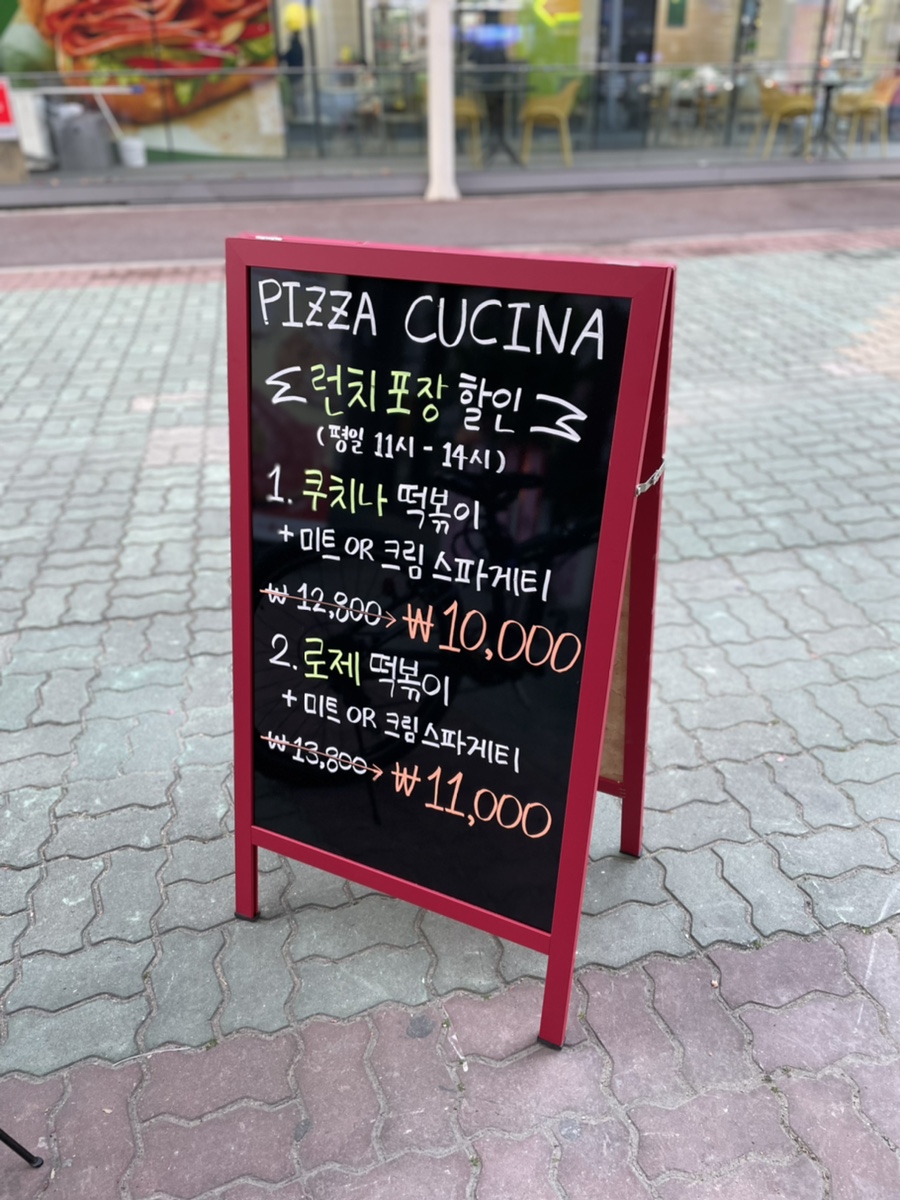 PIZZA CUCINA
런치 포장 할인
(평일 11시 - 14시)
1. 쿠치나 떡볶이
+ 미트 OR 크림 스파게티
₩ 12,800 → ₩ 10,000
2. 로제 떡볶이
+ 미트 OR 크림 스파게티
₩ 13,800 → ₩ 11,000